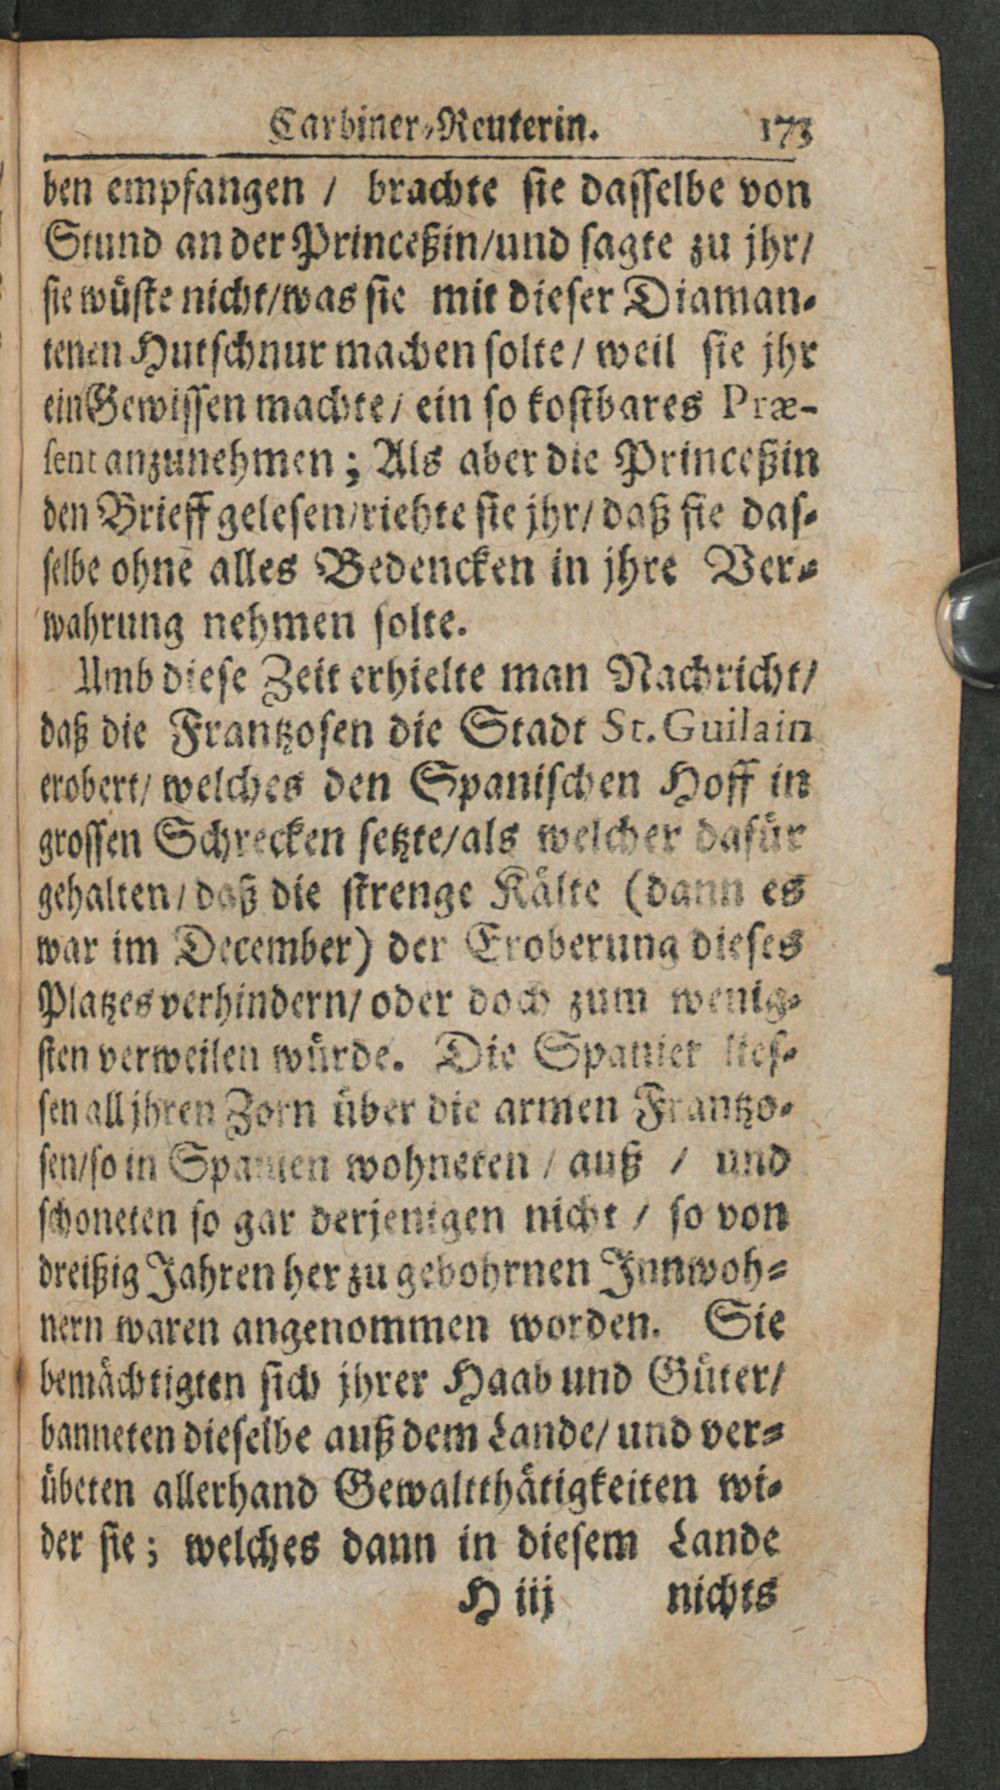 Carbiner-Reuterin. 173
ben empfangen / brachte sie dasselbe von
Stund an der Princeßin/und sagte zu jhr/
sie wüste nicht/was sie mit dieser Diaman-
tenen Hutschnur machen solte/ weil sie jhr
ein Gewissen machte/ ein so kostbares Præ-
sent anzunehmen; Als aber die Princeßin
den Brieff gelesen/riehte sie jhr/ daß sie das-
selbe ohne alles Bedencken in jhre Ver-
wahrung nehmen solte.
Umb diese Zeit erhielte man Nachricht/
daß die Frantzosen die Stadt St. Guilain
erobert/ welches den Spanischen Hoff in
grossen Schrecken setzte/als welcher dafür
gehalten/ daß die strenge Kälte (dann es
war im December) der Eroberung dieses
Platzes verhindern/ oder doch zum wenig-
sten verweilen würde. Die Spanier lies-
sen all jhren Zorn über die armen Frantzo-
sen/so in Spanien wohneten / auß / und
schoneten so gar derjenigen nicht / so von
dreißig Jahren her zu gebohrnen Innwoh-
nern waren angenommen worden. Sie
bemächtigten sich jhrer Haab und Güter/
banneten dieselbe auß dem Lande/ und ver-
übeten allerhand Gewaltthätigkeiten wi-
der sie; welches dann in diesem Lande
H iij nichts